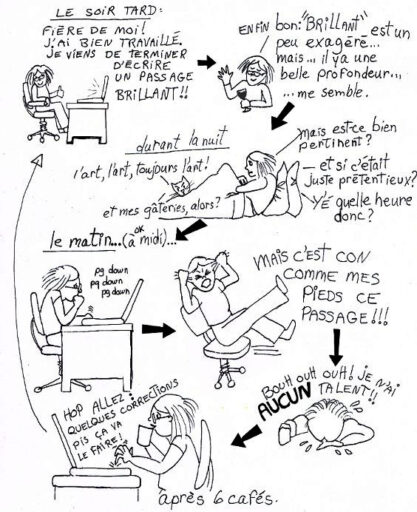 LE SOIR TARD:
FIÈRE DE MOI!
J'AI BIEN TRAVAILLÉ.
JE VIENS DE TERMINER
D'ÉCRIRE
UN PASSAGE
BRILLANT!!
ENFIN bon: "BRILLANT" est un
peu exagéré...
mais... il y a une
belle profondeur...
...me semble.
durant la nuit
l'art, l'art, toujours l'art!
et mes gâteries, alors?
mais est-ce bien
pertinent?
et si c'était
juste prétentieux?
Y'É quelle heure
donc?
le matin...(à midi)...
OK
pg down
pg down
pg down
MAIS C'EST CON
COMME MES
PIEDS CE
PASSAGE!!!
BOUH OUH OUH! JE N'AI
AUCUN TALENT!!
HOP ALLEZ:
QUELQUES CORRECTIONS
PIS ÇA VA
LE FAIRE!
après 6 cafés.